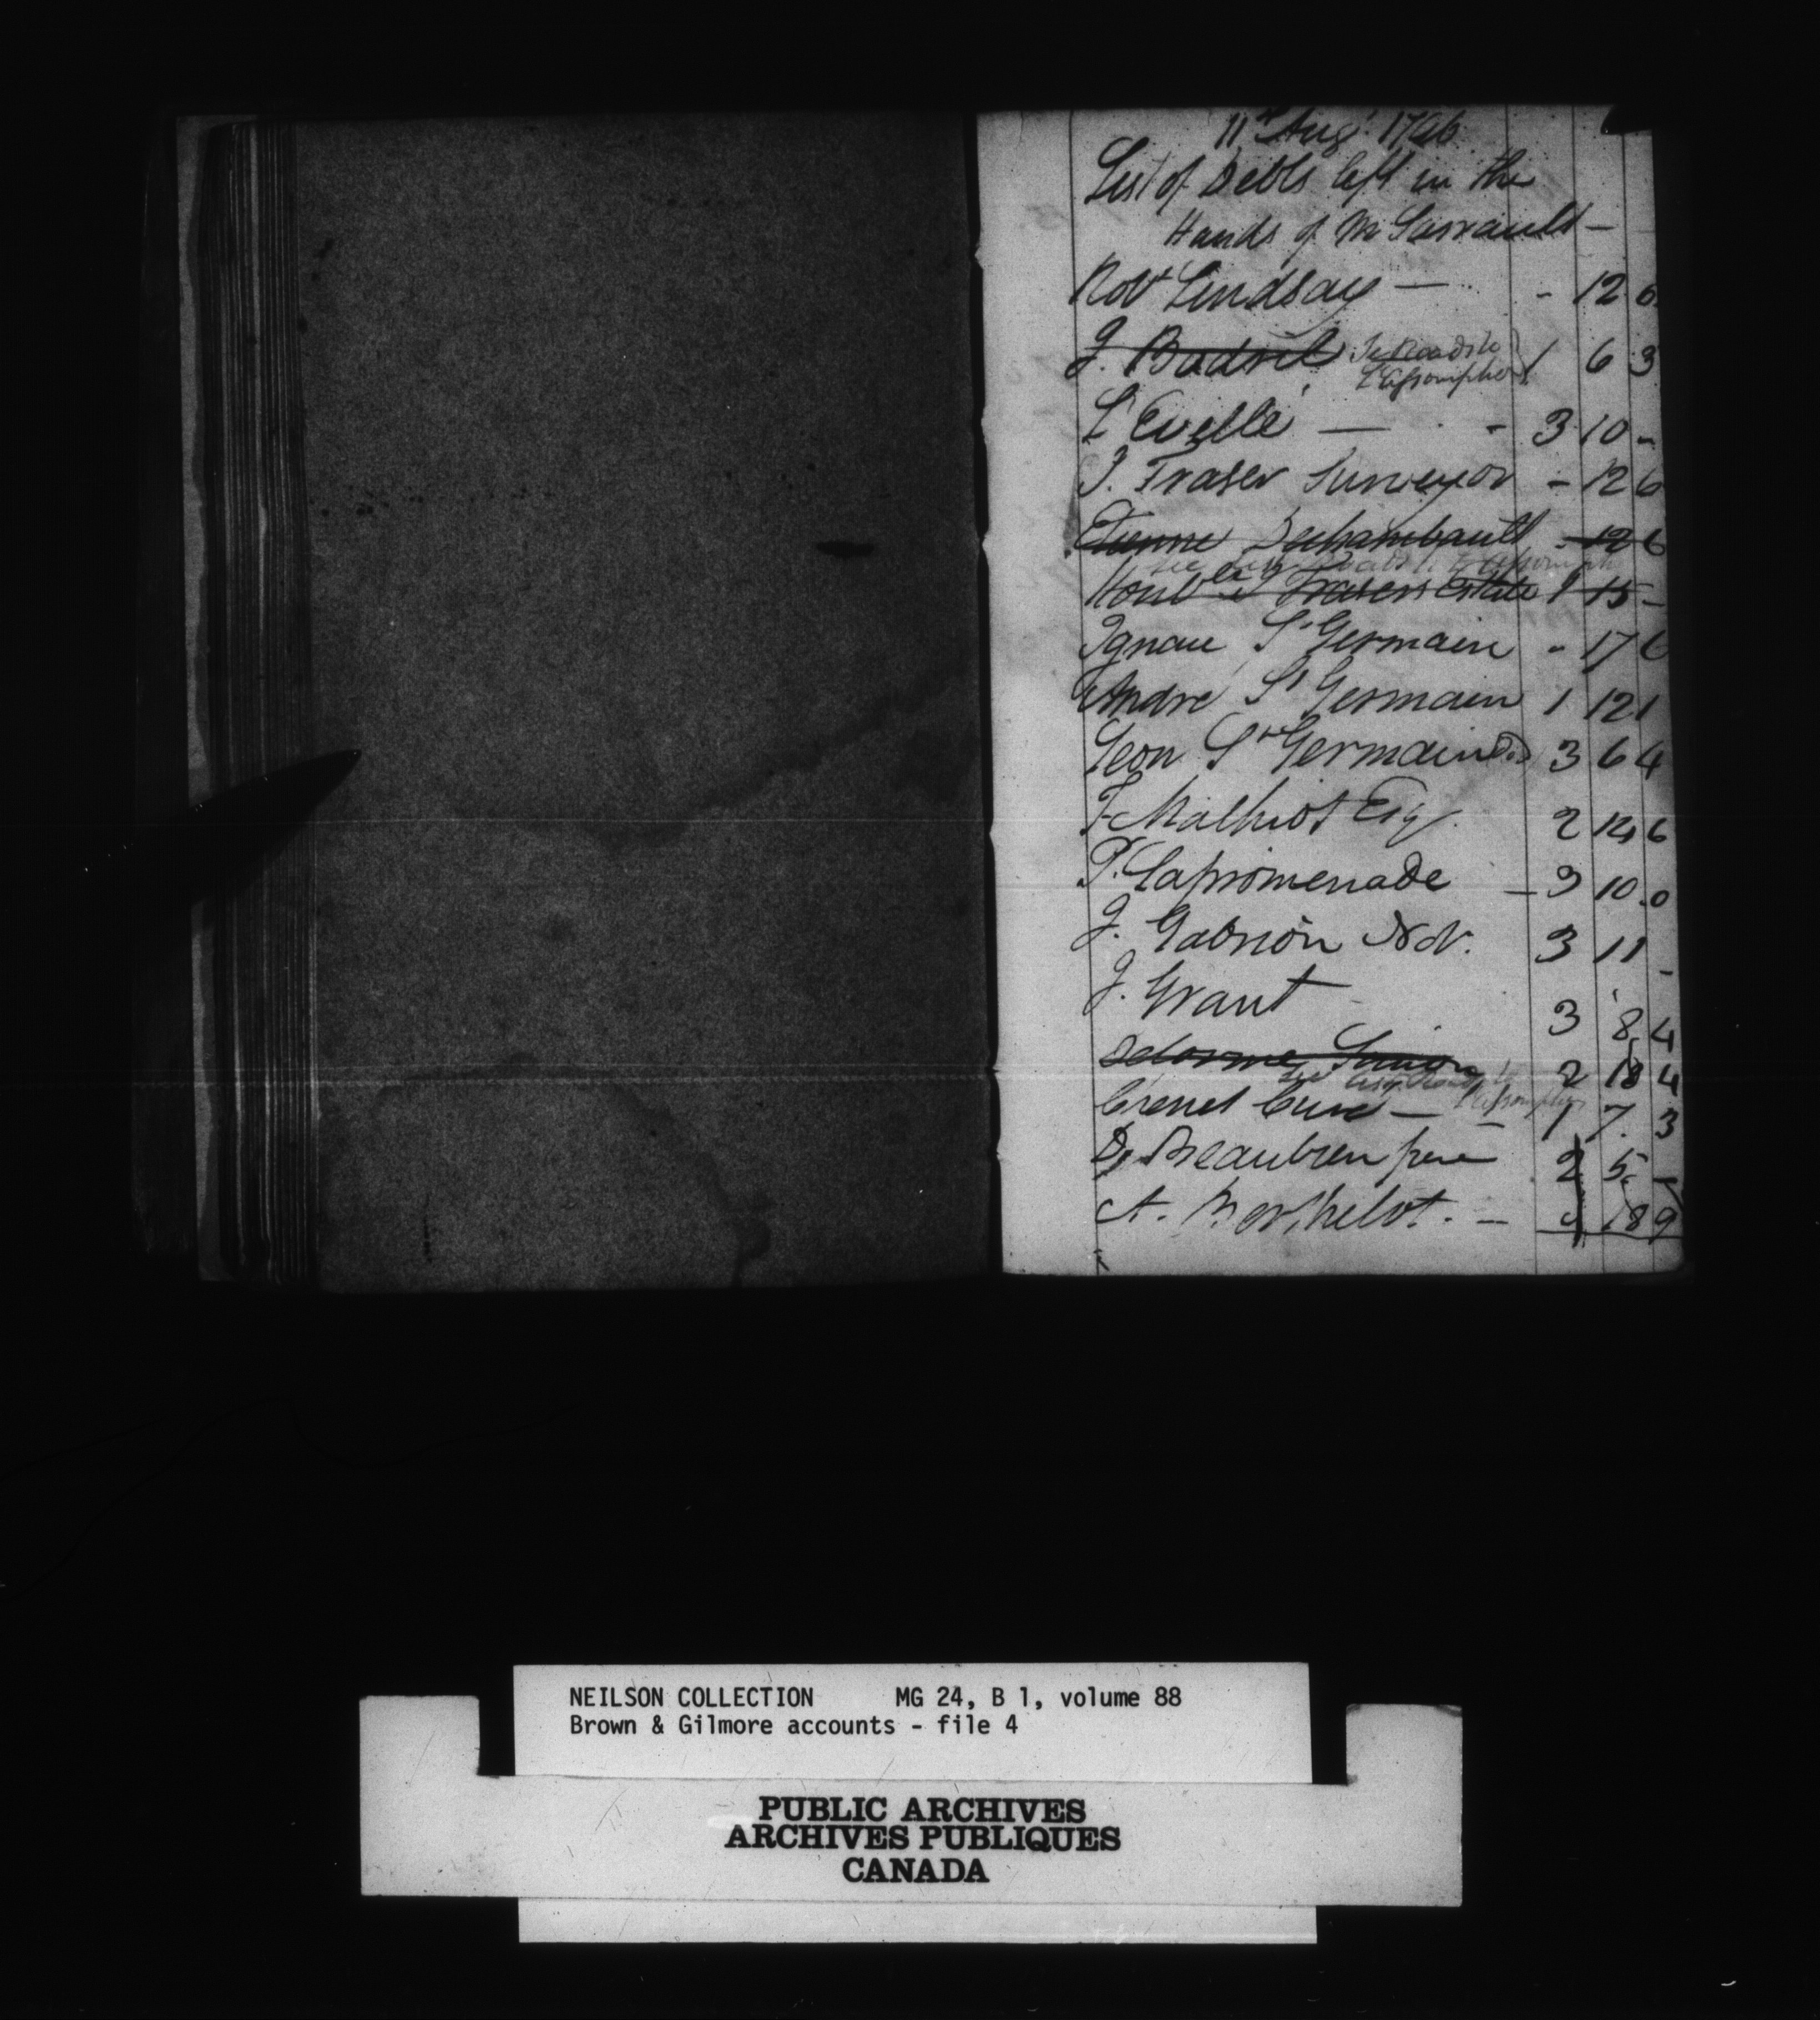 11th Augt. 1796
List of Debts left in the
Hands of Mr Sarrault —
Robt Lindsay — - 12 6
J. Badoil 1 6 3
L'Assomption
L'Eveillé — - 3 10 -
J. Fraser Surveyor - 12 6
Etienne Dechambault - 12 6
see L'Assomption
Honble Frasers Estate 1 15 -
Ignace St Germain - 17 6
Andre St Germain 1 12 1
Leon St Germain 3 6 4
F. Malhiot Esq. 2 14 6
P. Lapromenade - 3 10 0
J. Gabrion Not. 3 11 -
J. Grant 3 8 4
Delorme Junior 2 18 4
see L'Assomption
Curé — - 1 7 3
D. Beaubien pere 2 5 -
A. Berthelot. - 18 9
NEILSON COLLECTION MG 24, B 1, volume 88
Brown & Gilmore accounts - file 4
PUBLIC ARCHIVES
ARCHIVES PUBLIQUES
CANADA